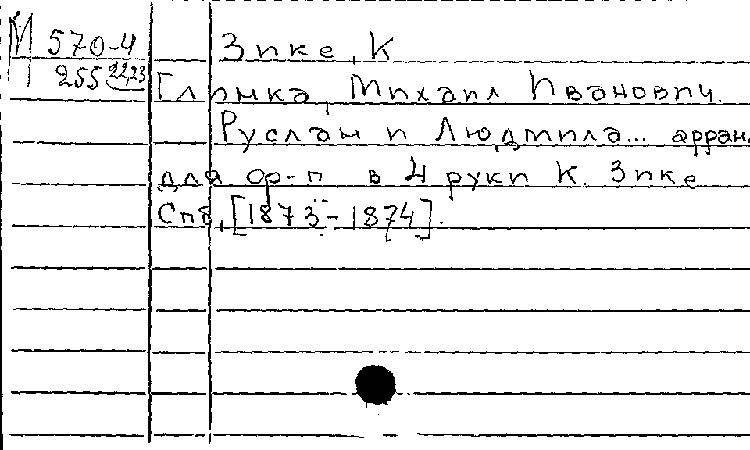 М 570-4
255
Зике, К
Глинка, Михаил Иванович.
Руслан и Людмила... арран.
для ор-п в 4 руки К. Зике
Спб, [1873-1874].